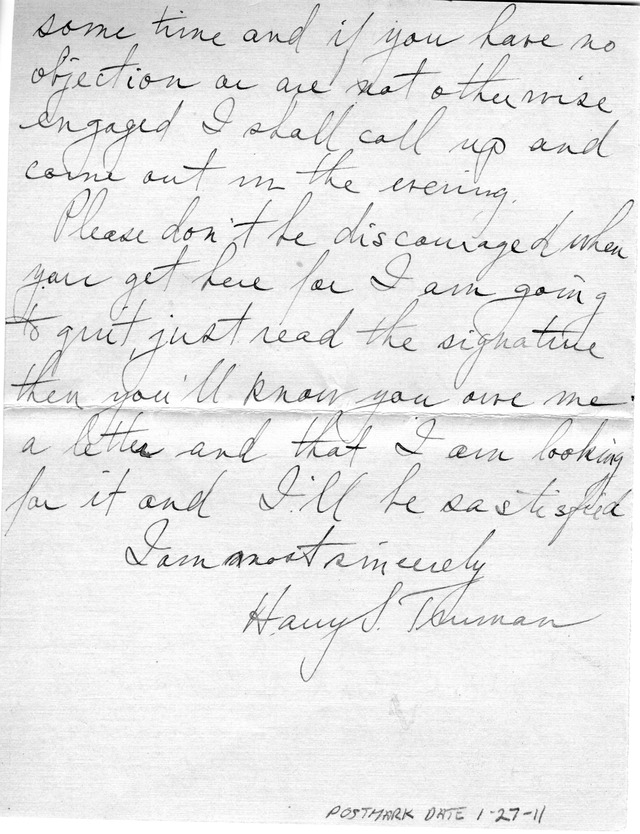 some time and if you have no
objection or are not otherwise
engaged I shall call up and
come out in the evening.
Please don't be discouraged when
you get here for I am going
to quit, just read the signature
then you'll know you owe me
a letter and that I am looking
for it and I'll be satisfied
I am most sincerely
Harry S. Truman
POSTMARK DATE 1-27-11